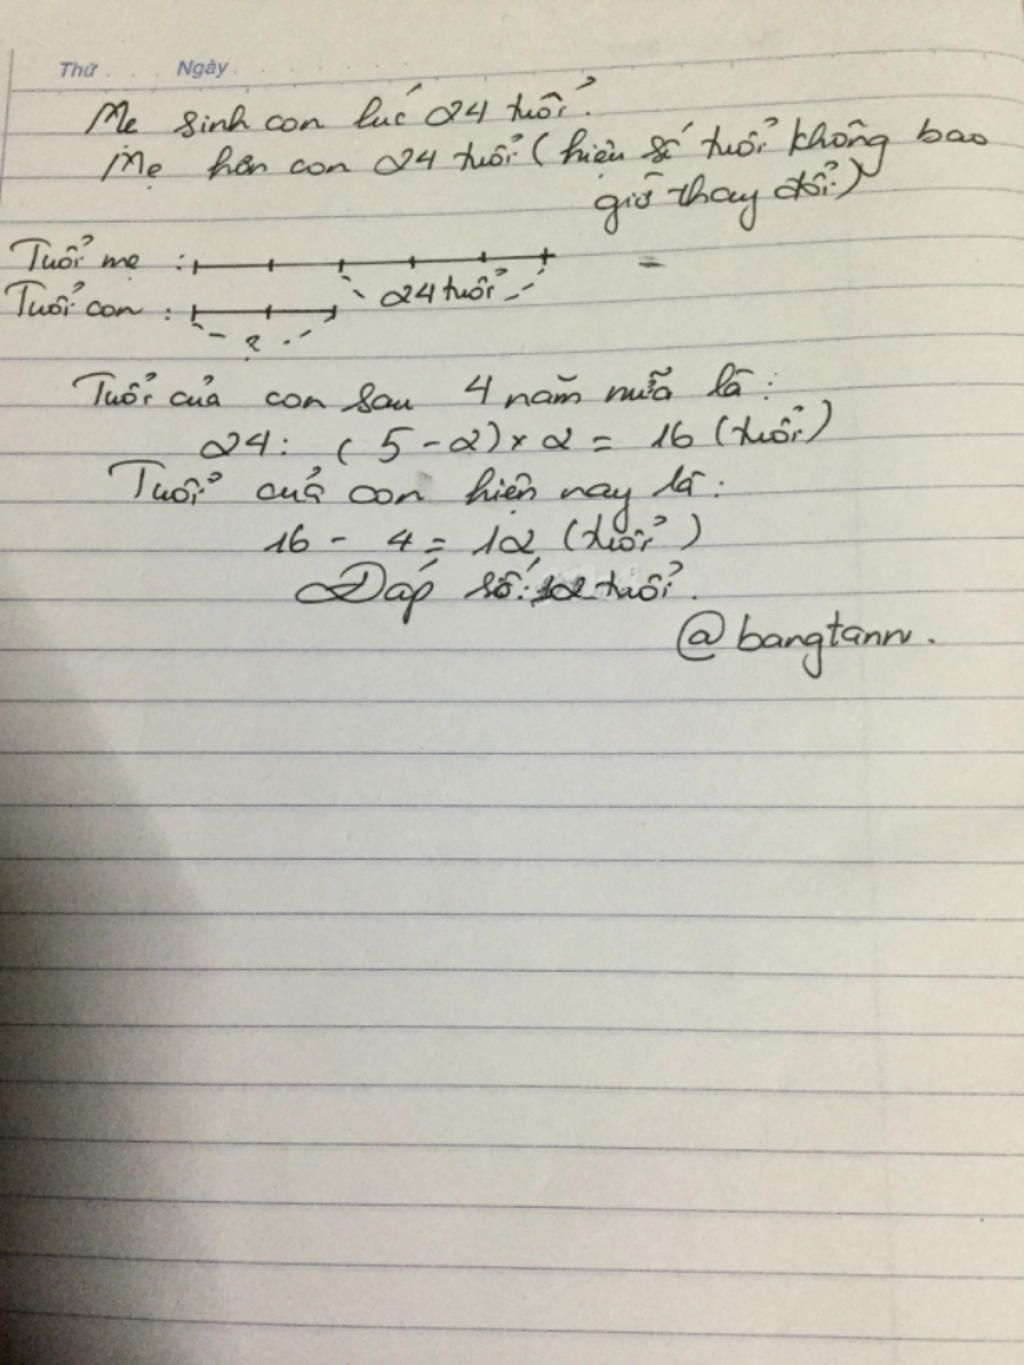 Thứ . . . . Ngày . . . . . .
Mẹ sinh con lúc 24 tuổi.
Mẹ hơn con 24 tuổi (hiệu số tuổi không bao
giờ thay đổi)
Tuổi mẹ :
24 tuổi
Tuổi con :
?
Tuổi của con sau 4 năm nữa là:
24 : (5 - 2) x 2 = 16 (tuổi)
Tuổi của con hiện nay là:
16 - 4 = 12 (tuổi)
Đáp số: 12 tuổi.
@bangtann.